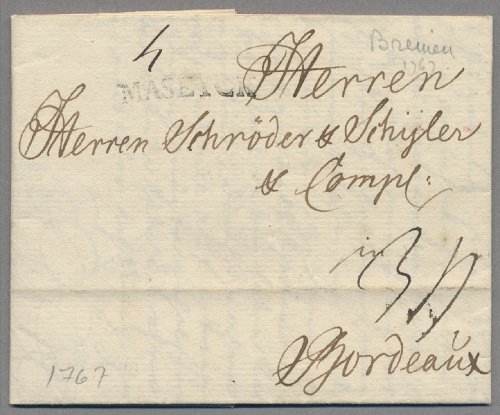 Bremen
1767
4
Herren
MASEYCK
Herren Schröder & Schijler
& Comp:
in
Bordeaux
1767